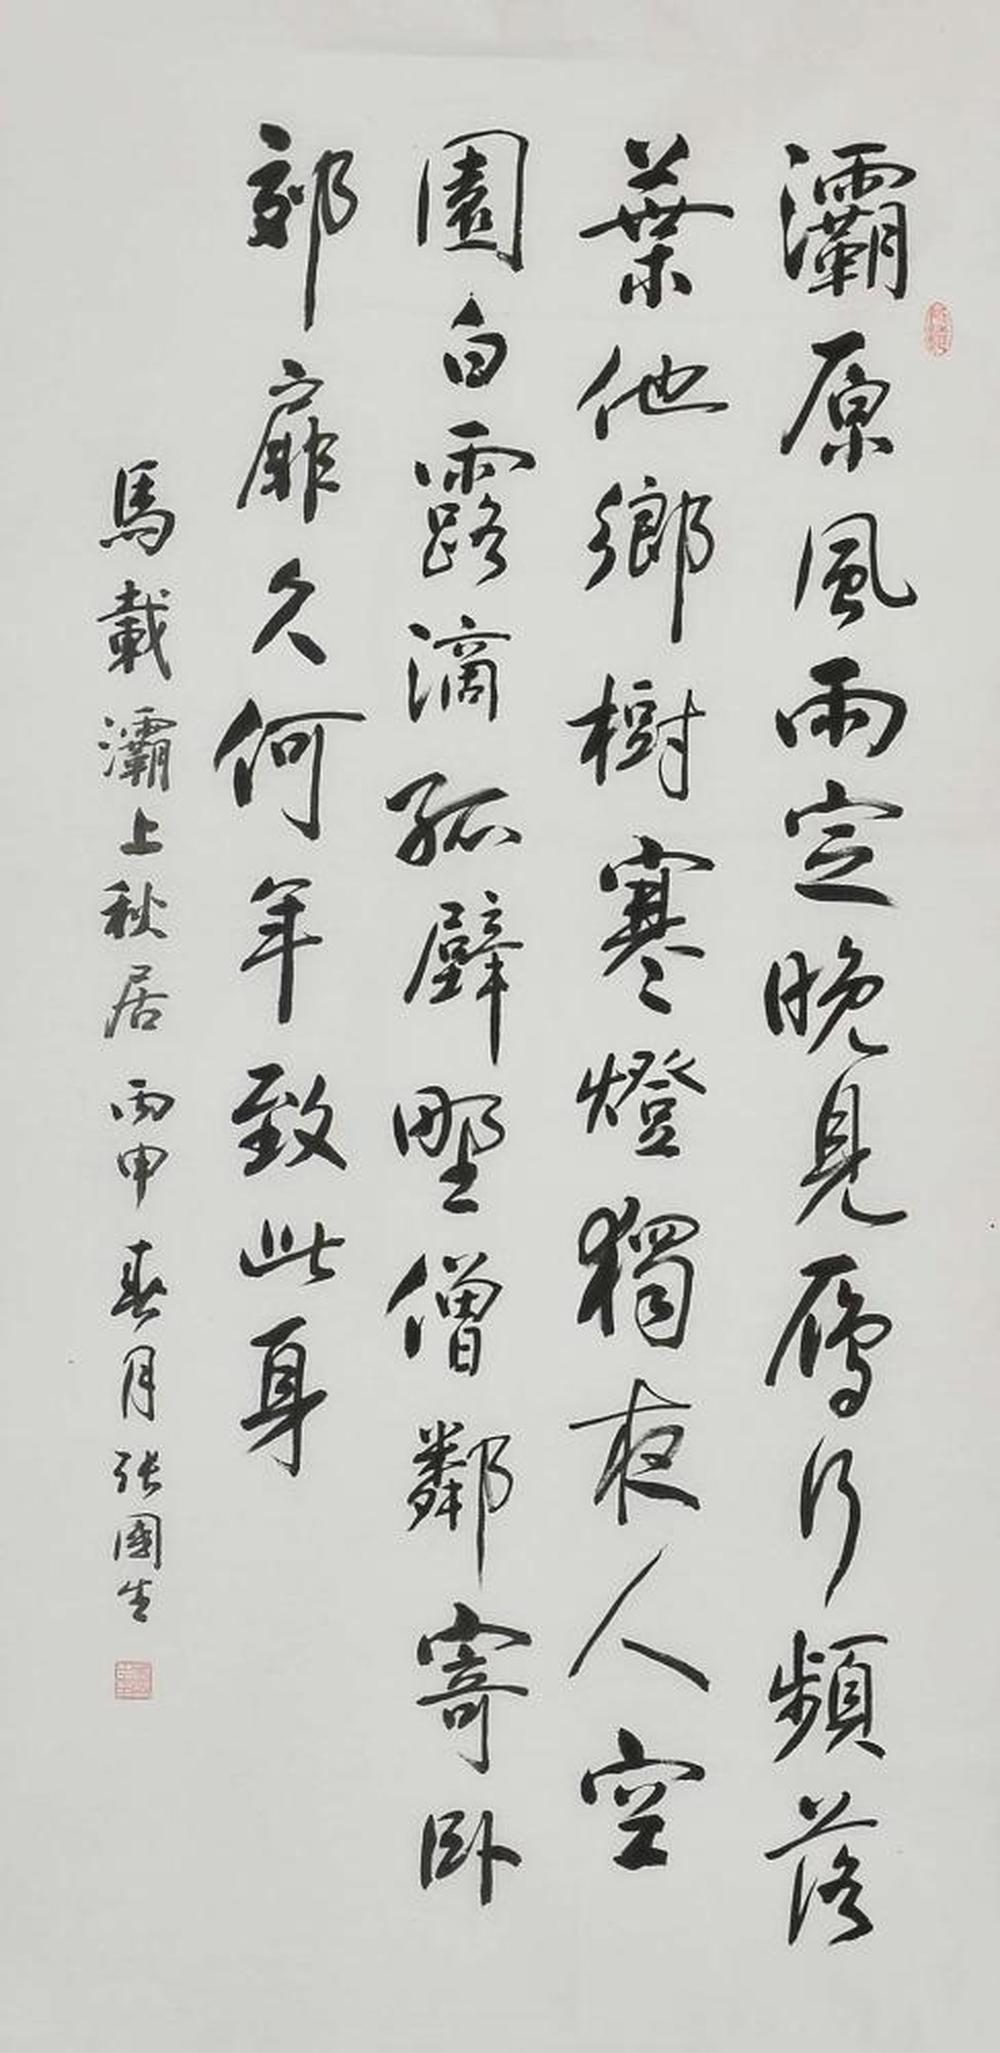 灞原風雨定晚見鴈行頻落
葉他鄉樹寒燈獨夜人空
園白露滴孤壁野僧鄰寄卧
郊扉久何年致此身
馬載灞上秋居丙申春月張國生